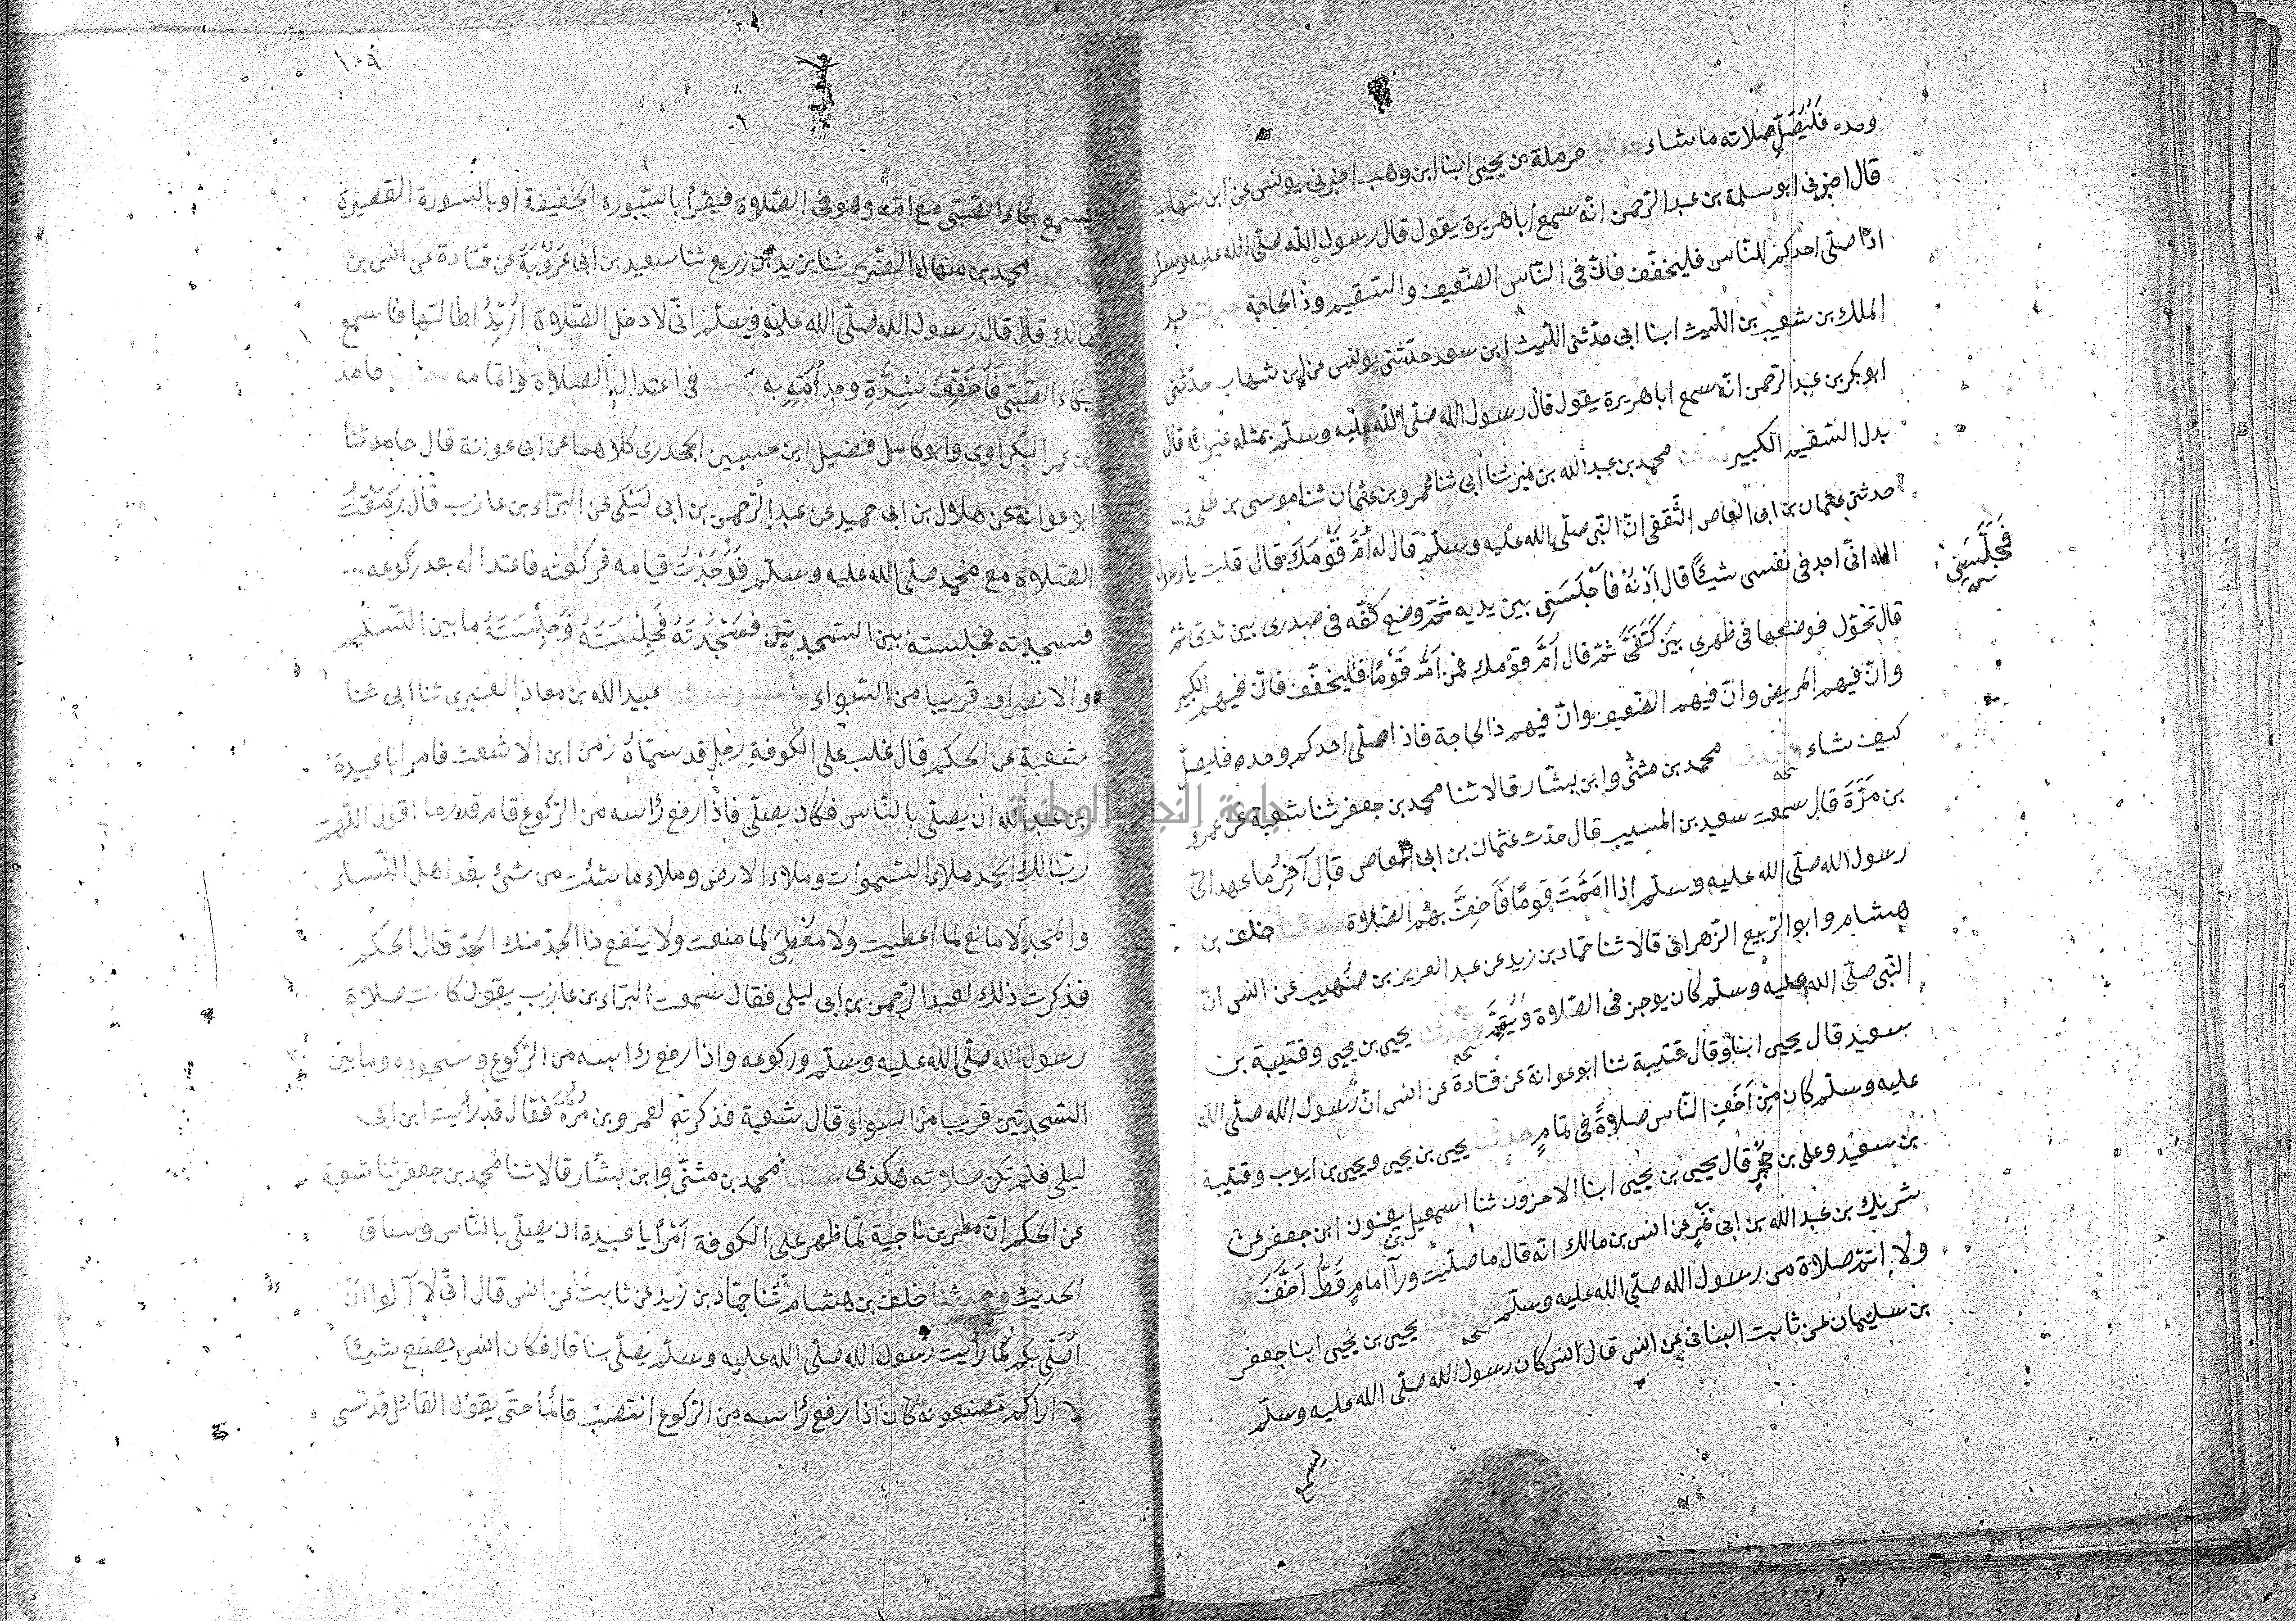 وحده فَلْيُصَلِّ صلاته ما شاء حدثنى حرملة بن يحيى ابنا ابن وهب اخبرنى يونس عن ابن شهاب
قال اخبرنى ابو سلمة بن عبد الرّحمن انّه سمع أبا هريرة يقول قال رسول الله صلّى الله عليه وسلّم
اذا صلّى احدكم للنّاس فليخفّف فانّ فى النّاس الضّعيف والسّقيم وذا الحاجة حدثنا عبد
الملك بن شعيب بن اللّيث ابنا ابى حدّثنى اللّيث ابن سعد حدّثنى يونس عن ابن شهاب حدّثنى
ابو بكر بن عبد الرّحمن انّه سمع ابا هريرة يقول قال رسول الله صلّى الله عليه وسلّم بمثله غير انّه قال
بدل السّقيم الكبير حدثنا محمد بن عبد الله بن نمير ثنا أبى ثنا عمرو بن عثمان ثنا موسى بن طلحة
حدثنى عثمان بن ابى العاص الثّقفى انّ النّبى صلّى الله عليه وسلّم قال له أُمَّ قَوْمَكَ قال قلت يا رسول
الله انّى اجد فى نفسى شيئًا قال أدْنُهْ فَأَجْلَسَنِى بين يديه ثمّ وضع كفّه فى صدرى بين ثديى ثمّ
فَجَلَّسَنِى
قال تحوّل فوضعها فى ظهرى بين كَتِفَىَّ ثمّ قال أُمَّ قَوْمك فمن اَمَّ قَوْمًا فليخفّف فانّ فيهم الكبير
وانّ فيهم المريض وانّ فيهم الضّعيف وانّ فيهم ذا الحاجة فاذا صلّى احدكم وحده فليصلّ
كيف شاء وحدثنا محمد بن مثنّى وابن بشّار قالا ثنا محمد بن جعفر ثنا شعبة عن عمرو
بن مرّة قال سمعت سعيد بن المسيب قال حدّث عثمان بن ابى العاص قال آخِرُ ما عهد الىّ
رسول الله صلّى الله عليه وسلّم اذا اَمَمْتَ قَوْمًا فَأَخِفَّ بهم الصّلاة حدثنا خلف بن
هشام وابو الرّبيع الزّهرانى قالا ثنا حمّاد بن زيد عن عبد العزيز بن صُهيب عن انس انّ
النّبى صلّى الله عليه وسلّم كان يوجز فى الصّلاة وَيُتِمُّ وحدثنا يحيى بن يحيى وقتيبة بن
سعيد قال يحيى ابنا وقال قتيبة ثنا ابو عوانة عن قتادة عن انس انّ رسول الله صلّى الله
عليه وسلّم كان مِنْ اَخَفِّ النّاس صلاةً فى تمامٍ حدثنا يحيى بن يحيى ويحيى بن ايوب وقتيبة
بن سعيد وعلى بن حُجْرٍ قال يحيى بن يحيى ابنا الآخرون ثنا اسمعيل يعنون ابن جعفر عن
شريك بن عبد الله بن ابى نَمِرٍ عن انس بن مالك انّه قال ما صلّيت ورآ امامٍ قَطُّ اَخَفَّ
ولا اتمّ صلاة من رسول الله صلّى الله عليه وسلّم وحدثنا يحيى بن يحيى ابنا جعفر
بن سليمان عن ثابت البنانى عن انس قال انس كان رسول الله صلّى الله عليه وسلّم
يسمع
١٠٩
يسمع بكاء الصّبى مع امّه وهو فى الصّلاة فيقرأ بالسّورة الخفيفة او بالسورة القصيرة
حدثنا محمد بن منهال الضّرير ثنا يزيد بن زريع ثنا سعيد بن ابى عَرُوبَةَ عن قتادة عن انس بن
مالك قال قال رسول الله صلّى الله عليه وسلّم انّى لادخل الصّلاة اُرِيدُ اطالتها فاسمع
بكاء الصّبى فَأُخَفِّفُ شِدَّةِ وجد اُمِّهِ بِهِ باب فى اعتدال الصلاة واتمامه حدثنا حامد
بن عمر البكراوى وابو كامل فضيل ابن حسين الجحدرى كلاهما عن ابى عوانة قال حامد ثنا
ابو عوانة عن هلال بن ابى حميد عن عبد الرّحمن بن ابى لَيْلَى عن البرّاء بن عازب قال رَمَقْتُ
الصّلاة مع محمد صلّى الله عليه وسلّم فَوَجَدْتُ قيامه فركعته فاعتداله بعد ركوعه
فسجدته فجلسته بين السّجدتين فسَجْدَتَهُ فَجِلْسَتَهُ وَجِلْسَتَهُ ما بين التّسليم
والانصراف قريبا من السّواء باب وحدثنا عبيد الله بن معاذ العنبرى ثنا ابى ثنا
شعبة عن الحكم قال غلب على الكوفةِ رجل قد سمّاهُ زمن ابن الاشعث فامر ابا عبيدة
بن عبد الله ان يصلّى بالنّاس فكان يصلّى فاذا رفع رأسه من الرّكوع قام قدر ما اقول اللّهمّ
ربّنا لك الحمد ملاء السّموات وملاء الارض وملاء ما شئت من شئ بعد اهل الثّناء
والمجد لا مانع لما اعطيت ولا مُعْطِىَ لما منعت ولا ينفع ذا الجدّ منك الجدّ قال الحكم
فذكرت ذلك لعبد الرّحمن بن ابى ليلى فقال سمعت البرّاء بن عازب يقول كانت صلاة
رسول الله صلّى الله عليه وسلّم وركوعه واذا رفع رأسه من الرّكوع وسجوده وما بين
السّجدتين قريبا من السواء قال شعبة فذكرته لعمرو بن مُرَّةَ فقال قد رأيت ابن ابى
ليلى فلم تكن صلاته هكذى حدثنا محمد بن مثنّى وابن بشّار قالا ثنا محمد بن جعفر ثنا شعبة
عن الحكم انّ مطر بن ناجية لمّا ظهر على الكوفة اَمَرَ أبا عبيدة ان يصلّى بالنّاس وساق
الحديث وحدثنا خلف بن هشام ثنا حمّاد بن زيد عن ثابت عن انس قال انّى لا آلوا انّ
اُصَلّى بكم كما رأيت رسول الله صلّى الله عليه وسلّم يصلّى بنا قال فكان انس يصنع شيئًا
لا اراكم تصنعونه كان اذا رفع رأسه من الرّكوع انتصب قائمًا حتّى يقول القائل قد نسى
جامعة النجاح الوطنية